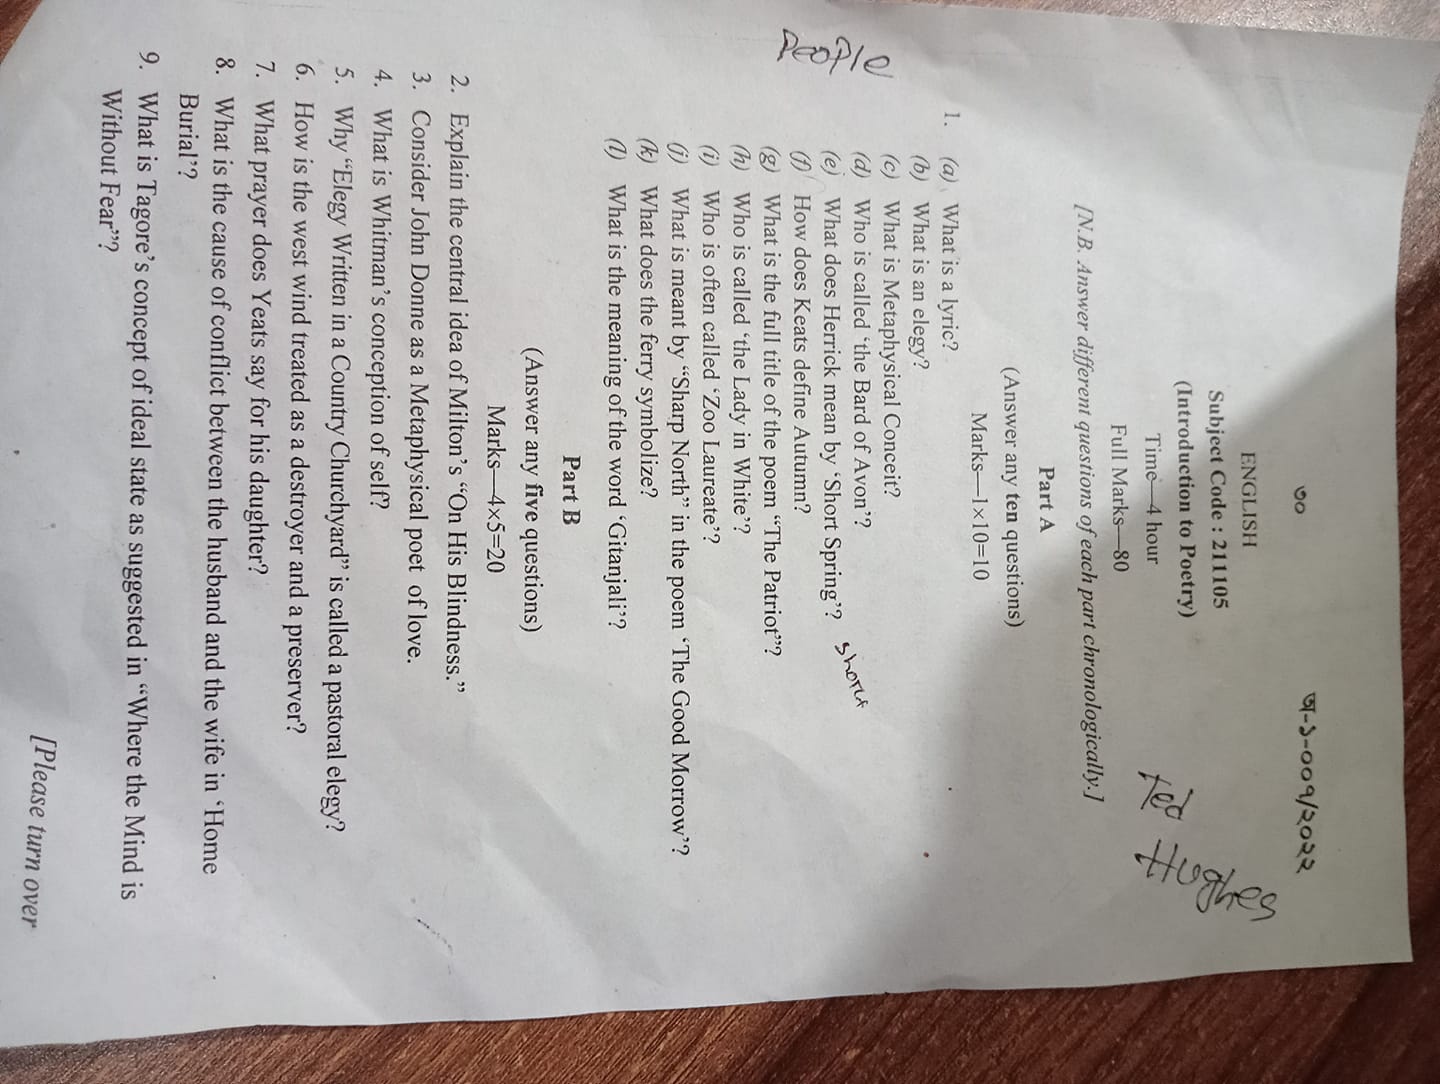 ৩০
অ-১-০০৭/২০২২
ENGLISH
Subject Code : 211105
(Introduction to Poetry)
Time—4 hour
Full Marks—80
Ted Hughes
[N.B. Answer different questions of each part chronologically.]
Part A
(Answer any ten questions)
Marks—1×10=10
1. (a) What is a lyric?
(b) What is an elegy?
(c) What is Metaphysical Conceit?
(d) Who is called ‘the Bard of Avon’?
(e) What does Herrick mean by ‘Short Spring’?
(f) How does Keats define Autumn?
(g) What is the full title of the poem “The Patriot”?
(h) Who is called ‘the Lady in White’?
(i) Who is often called ‘Zoo Laureate’?
(j) What is meant by “Sharp North” in the poem ‘The Good Morrow’?
(k) What does the ferry symbolize?
(l) What is the meaning of the word ‘Gitanjali’?
People
Part B
(Answer any five questions)
Marks—4×5=20
2. Explain the central idea of Milton’s “On His Blindness.”
3. Consider John Donne as a Metaphysical poet of love.
4. What is Whitman’s conception of self?
5. Why “Elegy Written in a Country Churchyard” is called a pastoral elegy?
6. How is the west wind treated as a destroyer and a preserver?
7. What prayer does Yeats say for his daughter?
8. What is the cause of conflict between the husband and the wife in ‘Home
Burial’?
9. What is Tagore’s concept of ideal state as suggested in “Where the Mind is
Without Fear”?
[Please turn over